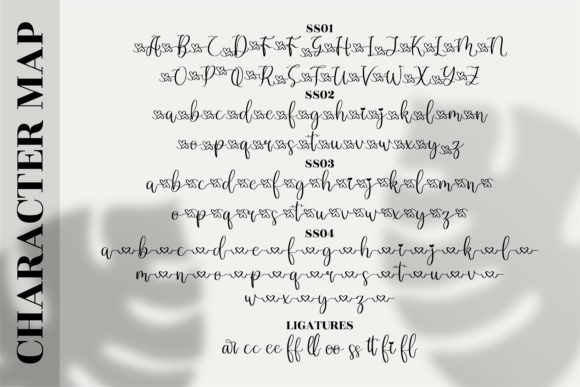 CHARACTER MAP
SS01
A B C D E F G H I J K L M N
O P Q R S T U V W X Y Z
SS02
a b c d e f g h i j k l m n
o p q r s t u v w x y z
SS03
a b c d e f g h i j k l m n
o p q r s t u v w x y z
SS04
a b c d e f g h i j k l
m n o p q r s t u v
w x y z
LIGATURES
cc ee ff ll oo ss tt fi fl